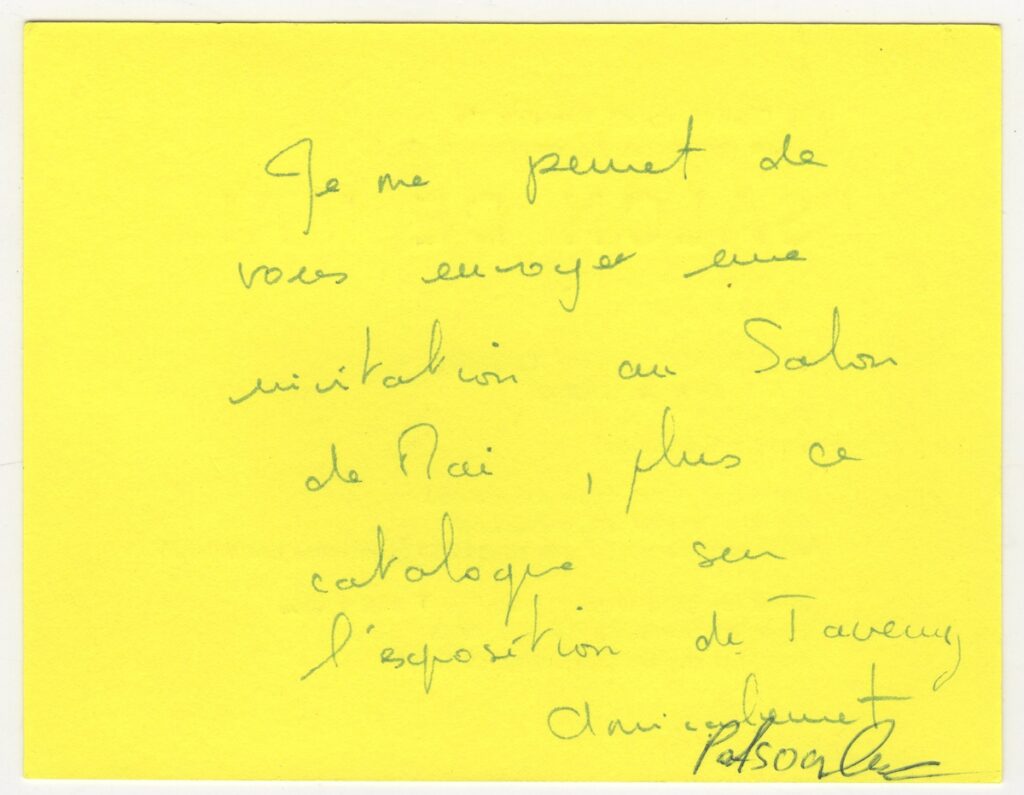 Je me permet de
vous envoyer une
invitation au Salon
de Mai, plus ce
catalogue sur
l'exposition de Taverny
amicalement